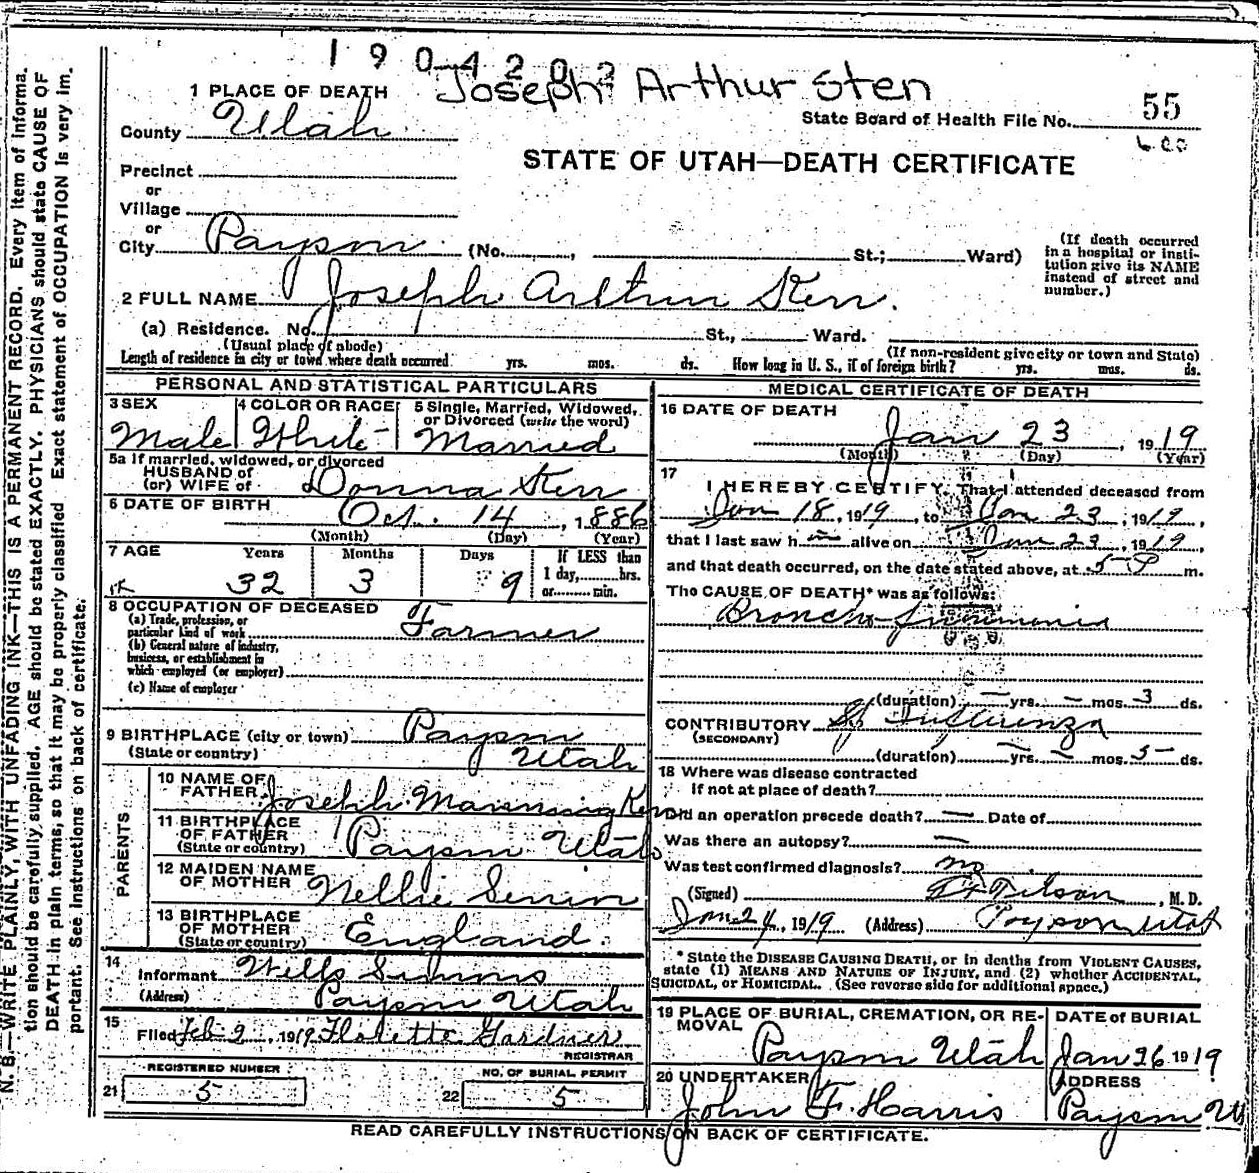 1904202
Joseph Arthur Sten
1 PLACE OF DEATH
State Board of Health File No. 55
County Utah
600
STATE OF UTAH—DEATH CERTIFICATE
Precinct
or
Village
or
City Payson (No. , St.; Ward)
(If death occurred in a hospital or institution give its NAME instead of street and number.)
2 FULL NAME Joseph Arthur Kerr.
(a) Residence. No. St., Ward.
(Usual place of abode) (If non-resident give city or town and State)
Length of residence in city or town where death occurred yrs. mos. ds. How long in U. S., if of foreign birth? yrs. mos. ds.
PERSONAL AND STATISTICAL PARTICULARS
3 SEX Male
4 COLOR OR RACE White
5 Single, Married, Widowed, or Divorced (write the word) Married
5a If married, widowed, or divorced
HUSBAND of
(or) WIFE of Donna Kerr
6 DATE OF BIRTH Oct. 14, 1886
(Month) (Day) (Year)
7 AGE Years Months Days If LESS than
32 3 9 1 day, hrs.
or min.
8 OCCUPATION OF DECEASED
(a) Trade, profession, or
particular kind of work Farmer
(b) General nature of industry,
business, or establishment in
which employed (or employer)
(c) Name of employer
9 BIRTHPLACE (city or town) Payson
(State or country) Utah
PARENTS
10 NAME OF FATHER Joseph Manning Kerr
11 BIRTHPLACE OF FATHER
(State or country) Payson Utah
12 MAIDEN NAME OF MOTHER Nellie
13 BIRTHPLACE OF MOTHER
(State or country) England.
14 Informant Wells Simons
(Address) Payson Utah
15 Filed Feb 2, 1919 Gardner
REGISTRAR
REGISTERED NUMBER NO. OF BURIAL PERMIT
21 5 22 5
MEDICAL CERTIFICATE OF DEATH
16 DATE OF DEATH
Jan 23, 1919
(Month) (Day) (Year)
17
I HEREBY CERTIFY, That I attended deceased from
Jan 18, 1919, to Jan 23, 1919,
that I last saw h alive on Jan 23, 1919,
and that death occurred, on the date stated above, at 5 P m.
The CAUSE OF DEATH* was as follows:
Broncho pneumonia
(duration) — yrs. — mos. 3 ds.
CONTRIBUTORY Influenza
(SECONDARY)
(duration) — yrs. — mos. 5 ds.
18 Where was disease contracted
If not at place of death?
Did an operation precede death? — Date of
Was there an autopsy? —
Was test confirmed diagnosis? no
(Signed) , M. D.
Jan 24, 1919 (Address) Payson Utah
* State the DISEASE CAUSING DEATH, or in deaths from VIOLENT CAUSES,
state (1) MEANS AND NATURE OF INJURY, and (2) whether ACCIDENTAL,
SUICIDAL, or HOMICIDAL. (See reverse side for additional space.)
19 PLACE OF BURIAL, CREMATION, OR REMOVAL DATE of BURIAL
Payson Utah Jan 26 1919
20 UNDERTAKER ADDRESS
John F. Harris Payson Ut
READ CAREFULLY INSTRUCTIONS ON BACK OF CERTIFICATE.
N. B.—WRITE PLAINLY, WITH UNFADING INK—THIS IS A PERMANENT RECORD. Every item of informa-
tion should be carefully supplied. AGE should be stated EXACTLY. PHYSICIANS should state CAUSE OF
DEATH in plain terms, so that it may be properly classified Exact statement of OCCUPATION is very im-
portant. See instructions on back of certificate.